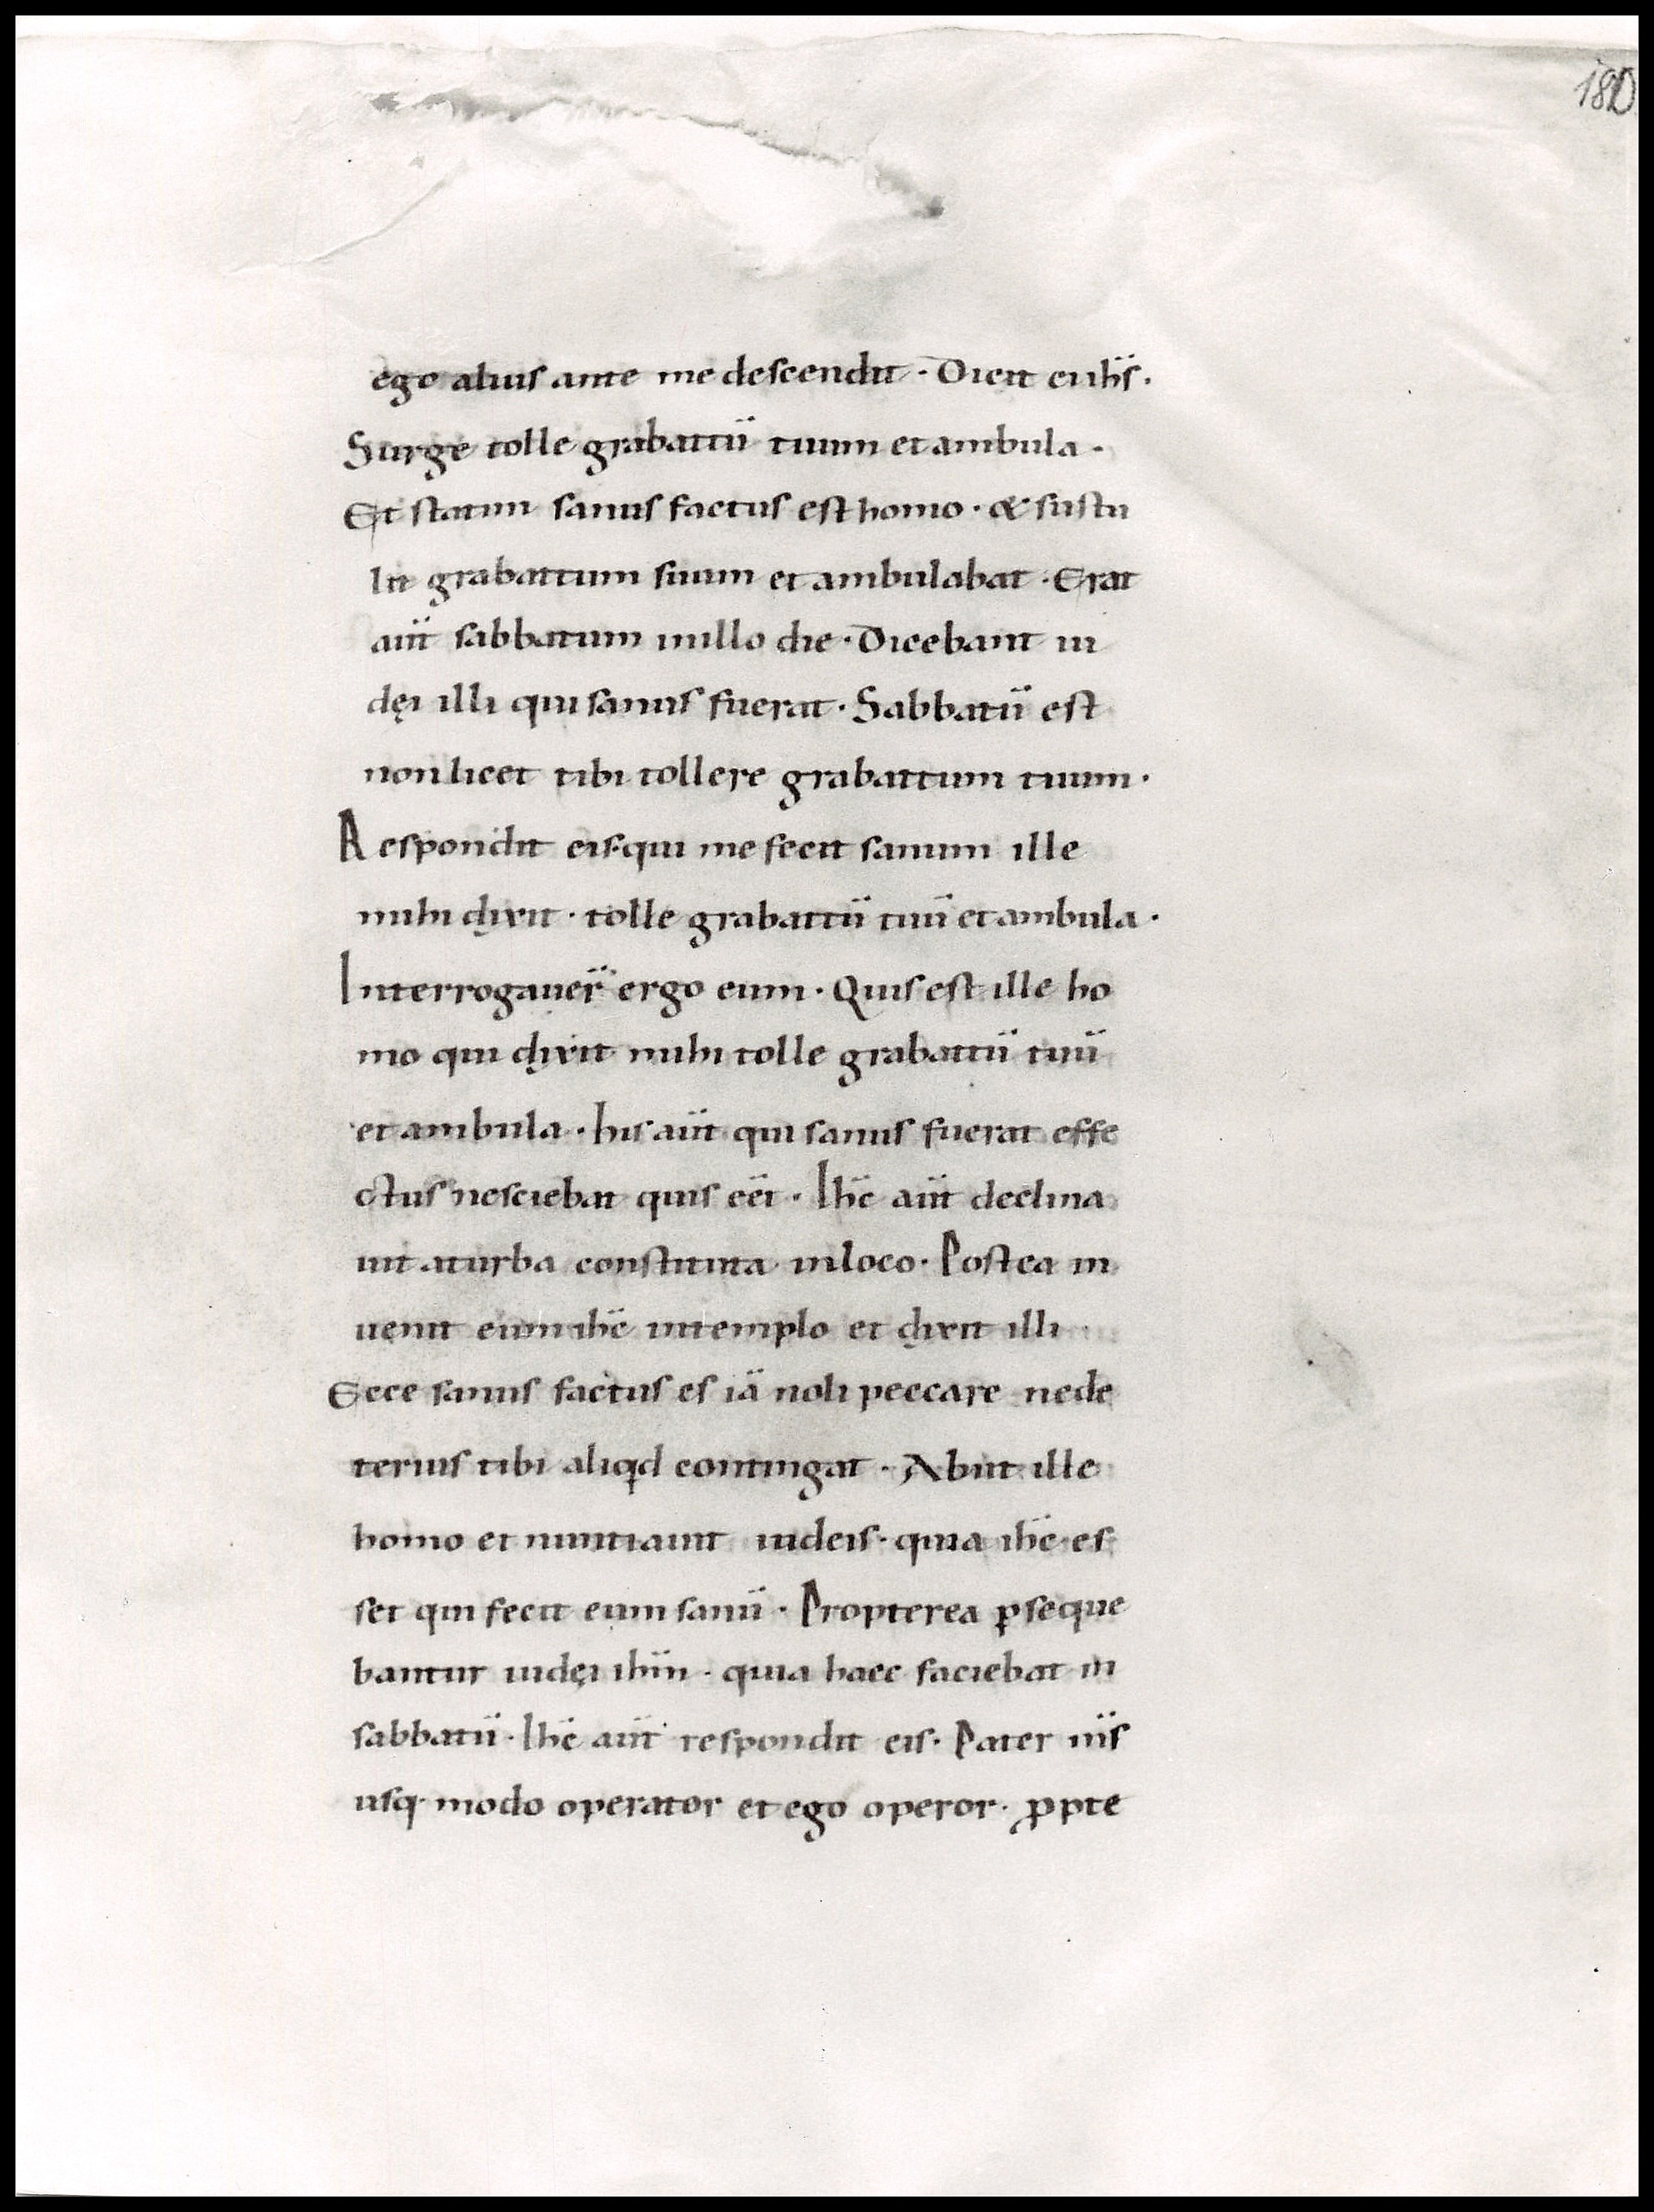 180
ego alius ante me descendit · Dicit ei ih̅s ·
Surge tolle grabattū tuum et ambula ·
Et statim sanus factus est homo · & sustu
lit grabattum suum et ambulabat · Erat
aūt sabbatum in illo die · Dicebant iu
dęi illi qui sanus fuerat · Sabbatū est
non licet tibi tollere grabattum tuum ·
Respondit eis · qui me fecit sanum ille
mihi dixit · tolle grabattū tuū et ambula ·
Interrogauer̄ ergo eum · Quis est ille ho
mo qui dixit mihi tolle grabattū tuū
et ambula · his aūt qui sanus fuerat effe
ctus nesciebat quis eēt · Ihc̄ aūt declina
uit a turba constituta in loco · Postea in
uenit eum ihc̄ in templo et dixit illi
Ecce sanus factus es iā noli peccare ne de
terius tibi aliqd contingat · Abiit ille
homo et nuntiauit iudeis · quia ihc̄ es
set qui fecit eum sanū · Propterea ꝑseque
bantur iudęi ihm̄ · quia haec faciebat in
sabbatū · Ihc̄ aūt respondit eis · Pater m̄s
usq· modo operator et ego operor · ꝓpte